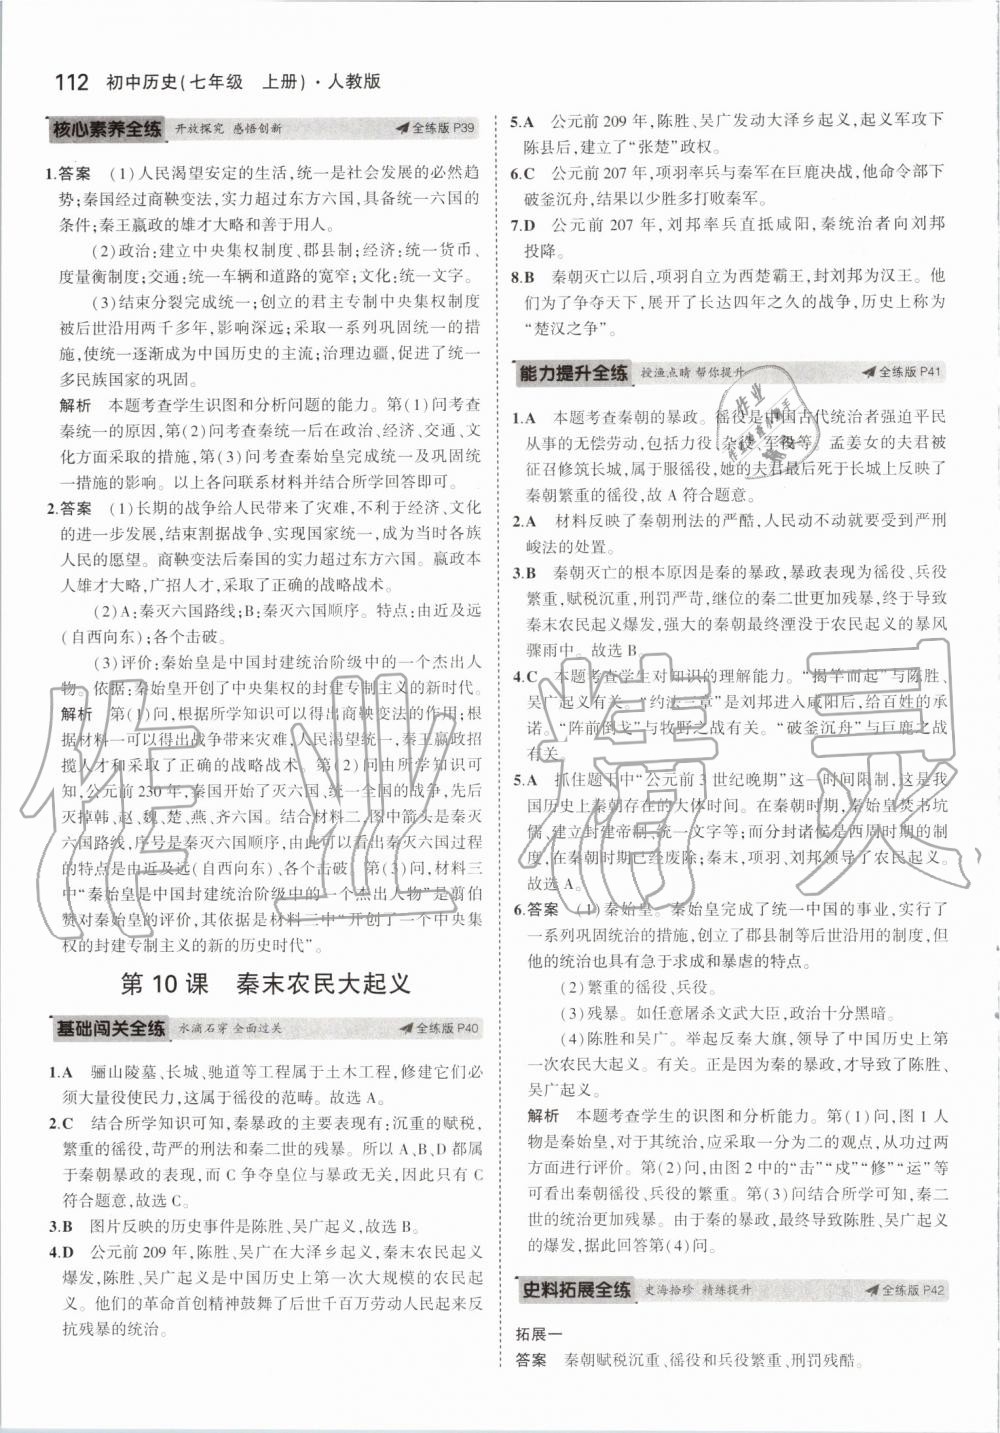 112 初中历史(七年级 上册)·人教版
核心素养全练 开放探究 感悟创新 全练版 P39
1.答案 (1)人民渴望安定的生活,统一是社会发展的必然趋
势;秦国经过商鞅变法,实力超过东方六国,具备统一六国的
条件;秦王嬴政的雄才大略和善于用人。
(2)政治:建立中央集权制度、郡县制;经济:统一货币、
度量衡制度;交通:统一车辆和道路的宽窄;文化:统一文字。
(3)结束分裂完成统一;创立的君主专制中央集权制度
被后世沿用两千多年,影响深远;采取一系列巩固统一的措
施,使统一逐渐成为中国历史的主流;治理边疆,促成了统一
多民族国家的巩固。
解析 本题考查学生识图和分析问题的能力。第(1)问考查
秦统一的原因,第(2)问考查秦统一后在政治、经济、交通、文
化方面采取的措施。第(3)问考查秦始皇完成统一及巩固统
一措施的影响。以上各问联系材料并结合所学回答即可。
2.答案 (1)长期的战争给人民带来了灾难,不利于经济、文化
的进一步发展,结束割据战争、实现国家统一,成为各族人
民的愿望。商鞅变法后秦国的实力超过东方六国。嬴政本
人雄才大略,广招人才,采取了正确的战略战术。
(2)A:秦灭六国路线;B:秦灭六国顺序。特点:由近及远
(自西向东);各个击破。
(3)评价:秦始皇是中国封建统治阶级中的一个杰出人
物。依据:秦始皇开创了中央集权的封建专制主义的新时代。
解析 第(1)问,根据所学知识可以得出商鞅变法的作用;根
据材料一可以得出战争带来灾难,人民渴望统一,秦王嬴政招
揽人才和采取了正确的战略战术。第(2)问由所学知识可
知,公元前 230 年,秦国开始了灭六国、统一全国的战争,先后
灭掉韩、赵、魏、楚、燕、齐六国。结合材料二,图中箭头是秦灭
六国路线,序号是秦灭六国顺序,由此可以看出秦灭六国过程
的特点是由近及远(自西向东)、各个击破。第(3)问,材料三
中“秦始皇是中国封建统治阶级中的一个杰出人物”是翦伯
赞对秦始皇的评价,其依据是材料三中“开创了一个中央集
权的封建专制主义的新的历史时代”。
第 10 课 秦末农民大起义
基础闯关全练 水滴石穿 全面过关 全练版 P40
1.A 骊山陵墓、长城、驰道等工程属于土木工程,修建它们必
须大量役使民力,这属于徭役的范畴。故选 A。
2.C 结合所学知识可知,秦暴政的主要表现有:沉重的赋税,
繁重的徭役,苛严的刑法和秦二世的残暴。所以 A、B、D 都
属于秦朝暴政的表现,而 C 争夺皇位与暴政无关,因此只有 C
符合题意,故选 C。
3.B 图片反映的历史事件是陈胜、吴广起义,故选 B。
4.D 公元前 209 年,陈胜、吴广在大泽乡起义,秦末农民起义
爆发,陈胜、吴广起义是中国历史上第一次大规模的农民起
义。他们的革命首创精神鼓舞了后世千百万劳动人民起来反
抗残暴的统治。
5.A 公元前 209 年,陈胜、吴广发动大泽乡起义,起义军攻下
陈县后,建立了“张楚”政权。
6.C 公元前 207 年,项羽率兵与秦军在巨鹿决战,他命令部下
破釜沉舟,结果以少胜多打败秦军。
7.D 公元前 207 年,刘邦率兵直抵咸阳,秦统治者向刘邦
投降。
8.B 秦朝灭亡以后,项羽自立为西楚霸王,封刘邦为汉王。他
们为了争夺天下,展开了长达四年之久的战争,历史上称为
“楚汉之争”。
能力提升全练 授渔点睛 帮你提升 全练版 P41
1.A 本题考查秦朝的暴政。徭役是中国古代统治者强迫平民
从事的无偿劳动,包括力役、杂役、军役等。孟姜女的夫君被
征召修筑长城,属于服徭役,她的夫君最后死于长城上反映了
秦朝繁重的徭役,故 A 符合题意。
2.A 材料反映了秦朝刑法的严酷,人民动不动就要受到严刑
峻法的处置。
3.B 秦朝灭亡的根本原因是秦的暴政,暴政表现为徭役、兵役
繁重,赋税沉重,刑罚严苛,继位的秦二世更加残暴,终于导致
秦末农民起义爆发,强大的秦朝最终湮没于农民起义的暴风
骤雨中。故选 B。
4.C 本题考查学生对知识的理解能力。“揭竿而起”与陈胜、
吴广起义有关。“约法三章”是刘邦进入咸阳后,给百姓的承
诺。“阵前倒戈”与牧野之战有关。“破釜沉舟”与巨鹿之战
有关。
5.A 抓住题干中“公元前 3 世纪晚期”这一时间限制,这是我
国历史上秦朝存在的大体时间。在秦朝时期,秦始皇焚书坑
儒、建立封建帝制、统一文字等;而分封诸侯是西周时期的制
度,在秦朝时期已经废除;秦末,项羽、刘邦领导了农民起义。
故选 A。
6.答案 (1)秦始皇。秦始皇完成了统一中国的事业,实行了
一系列巩固统治的措施,确立了郡县制等后世沿用的制度,但
他的统治也具有急于求成和暴虐的特点。
(2)繁重的徭役、兵役。
(3)残暴。如任意屠杀文武大臣,政治十分黑暗。
(4)陈胜和吴广。举起反秦大旗,领导了中国历史上第
一次农民大起义。有关。正是因为秦的暴政,才导致了陈胜、
吴广起义。
解析 本题考查学生的识图和分析能力。第(1)问,图 1 人
物是秦始皇,对于其统治,应采取一分为二的观点,从功过两
方面进行评价。第(2)问,由图 2 中的“击”“戍”“修”“运”等
可看出秦朝徭役、兵役的繁重。第(3)问结合所学可知,秦二
世的统治更加残暴。由于秦的暴政,最终导致陈胜、吴广起义
爆发,据此回答第(4)问。
史料拓展全练 史海拾珍 精练提升 全练版 P42
拓展一
答案 秦朝赋税沉重、徭役和兵役繁重、刑罚残酷。
作业精灵